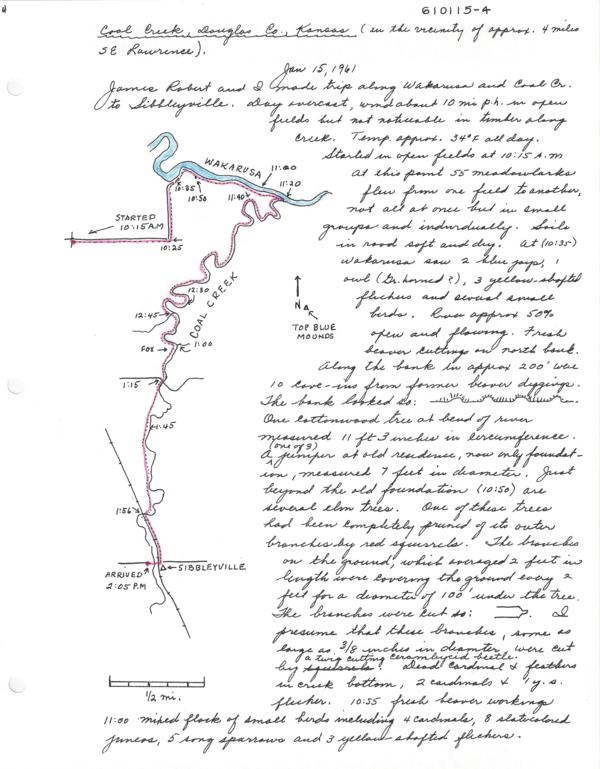 610115-4
Coal Creek, Douglas Co., Kansas (in the vicinity of approx. 4 miles
SE Lawrence).
Jan 15, 1961
James Robert and I made trip along Wakarusa and Coal Cr.
to Sibbleyville. Day overcast, wind about 10 mi p.h. in open
fields but not noticeable in timber along
creek. Temp. approx. 34°F all day.
Started in open fields at 10:15 A.M
At this point 55 meadowlarks
flew from one field to another,
not all at once but in small
groups and individually. Soils
in road soft and dry. At (10:35)
Wakarusa saw 2 blue jays, 1
owl (Gr. horned?), 3 yellow-shafted
flickers and several small
birds. River approx 50%
open and flowing. Fresh
beaver cuttings on north bank.
Along the bank in approx 200' were
10 cave-ins from former beaver diggings.
The bank looked so:
One cottonwood tree at bend of river
measured 11 ft 3 inches in circumference.
(one of 3)
A juniper at old residence, now only foundat-
ion, measured 7 feet in diameter. Just
beyond the old foundation (10:50) are
several elm trees. One of these trees
had been completely pruned of its outer
branches by red squirrels. The branches
on the ground, which averaged 2 feet in
length were covering the ground every 2
feet for a diameter of 100' under the tree.
The branches were cut so: . I
presume that these branches, some as
large as 3/8 inches in diameter, were cut
a twig cutting cerambycid beetle.
by squirrels? Dead cardinal & feathers
in creek bottom, 2 cardinals & 1 y.s.
flicker. 10:55 fresh beaver workings
11:00 mixed flock of small birds including 4 cardinals, 8 slate colored
juncos, 5 song sparrows and 3 yellow-shafted flickers.
WAKARUSA
11:00
11:20
10:35
10:50
11:40
STARTED
10:15AM
10:25
COAL CREEK
12:30
12:45
N
TOP BLUE
MOUNDS
FOX
1:00
1:15
1:45
1:56
SIBBLEYVILLE
ARRIVED
2:05 P.M
1/2 mi.